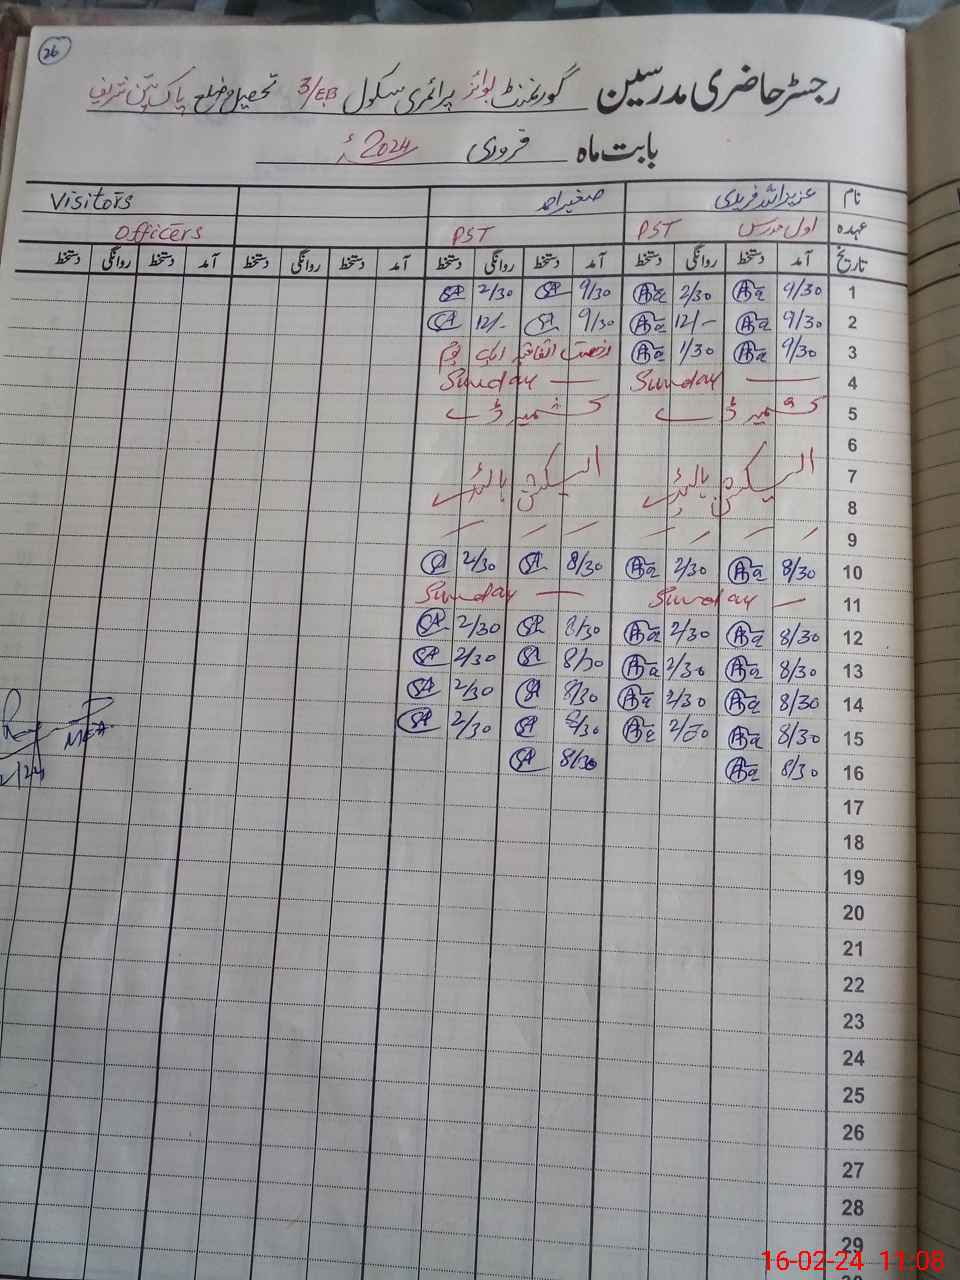 26
رجسٹر حاضری مدرسین گورنمنٹ بوائز پرائمری سکول 3/EB تحصیل و ضلع پاکپتن شریف
بابت ماہ فروری 2024ء
نام عزیز اللہ فریدی صغیر احمد Visitors
عہدہ اول مدرس PST PST Officers
تاریخ آمد دستخط روانگی دستخط آمد دستخط روانگی دستخط آمد دستخط روانگی دستخط آمد دستخط روانگی دستخط
1 9/30 2/30 9/30 2/30
2 9/30 12/- 9/30 12/-
3 9/30 1/30 رخصت اتفاقیہ ایک یوم
4 Sunday — Sunday —
5 کشمیر ڈے کشمیر ڈے
6
7 الیکشن ہالیڈے الیکشن ہالیڈے
8
9
10 8/30 2/30 8/30 2/30
11 Sunday — Sunday —
12 8/30 2/30 8/30 2/30
13 8/30 2/30 8/30 2/30
14 8/30 2/30 8/30 2/30
15 8/30 2/30 8/30 2/30
MEA
16 8/30 8/30
17
18
19
20
21
22
23
24
25
26
27
28
29
16-02-24 11:08